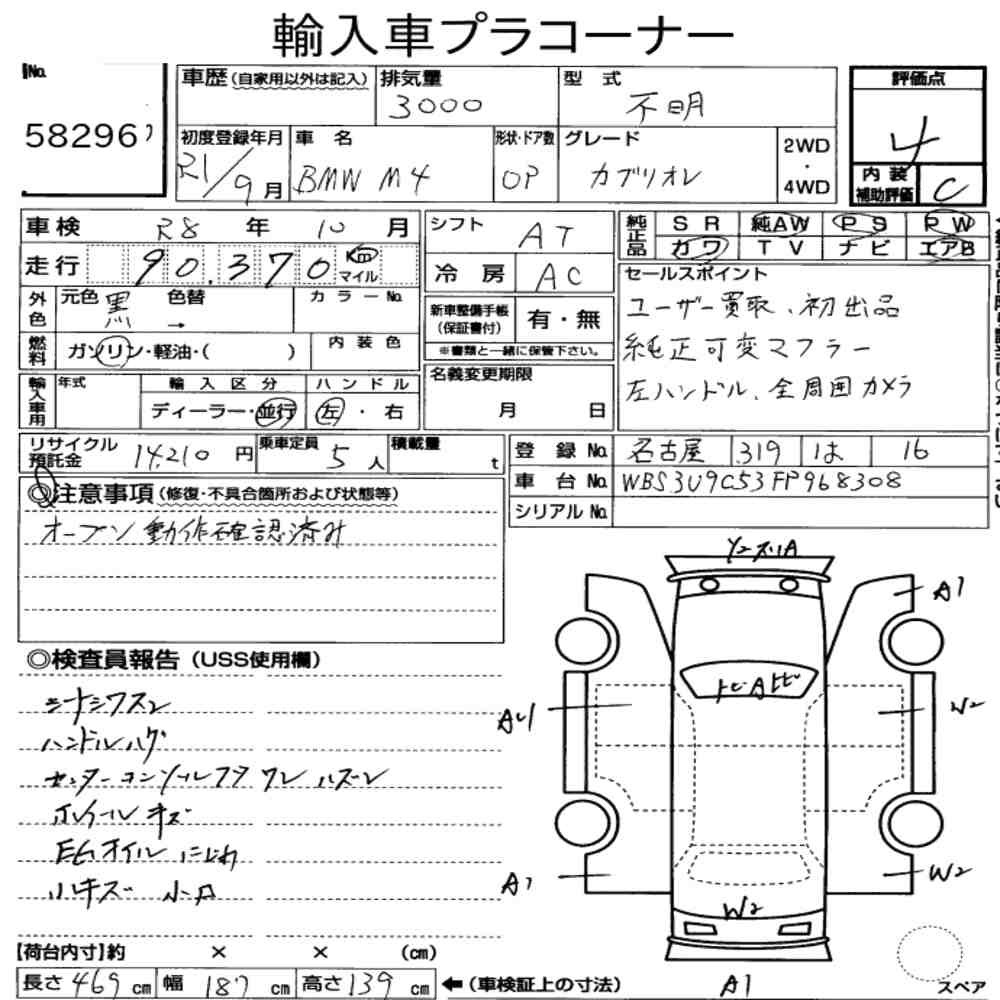 輸入車プラコーナー
No.
58296
車歴(自家用以外は記入) 排気量 型式
3000 不明
評価点
4
初度登録年月 車名 形状・ドア数 グレード 2WD・4WD
R1/9月 BMW M4 OP カブリオレ
内装補助評価 C
車検 R8年 10月
走行 90,370 km マイル
外色 元色 黒 色替 → カラーNo.
燃料 ガソリン・軽油・( ) 内装色
輸入車用 年式 輸入区分 ハンドル
ディーラー・並行 左・右
シフト AT
冷房 AC
新車整備手帳(保証書付) 有・無
※書類と一緒に保管下さい。
名義変更期限
月 日
純正品 SR 純AW PS PW
カワ TV ナビ エアB
セールスポイント
ユーザー買取、初出品
純正可変マフラー
左ハンドル、全周囲カメラ
リサイクル預託金 14,210円 乗車定員 5人 積載量 t
登録No. 名古屋 319 は 16
車台No. WBS3U9C53FP968308
シリアルNo.
◎注意事項(修復・不具合箇所および状態等)
オープン動作確認済み
◎検査員報告(USS使用欄)
シートシワスレ
ハンドルハゲ
センターコンソールフタ ワレ ハズレ
ホイールキズ
EGオイルにじみ
小キズ 小凹
Y2 スリA
A1
トビA
W2
A1
W2
W2
A1
【荷台内寸】約 × × (cm)
長さ 469cm 幅 187cm 高さ 139cm ←(車検証上の寸法)
スペア